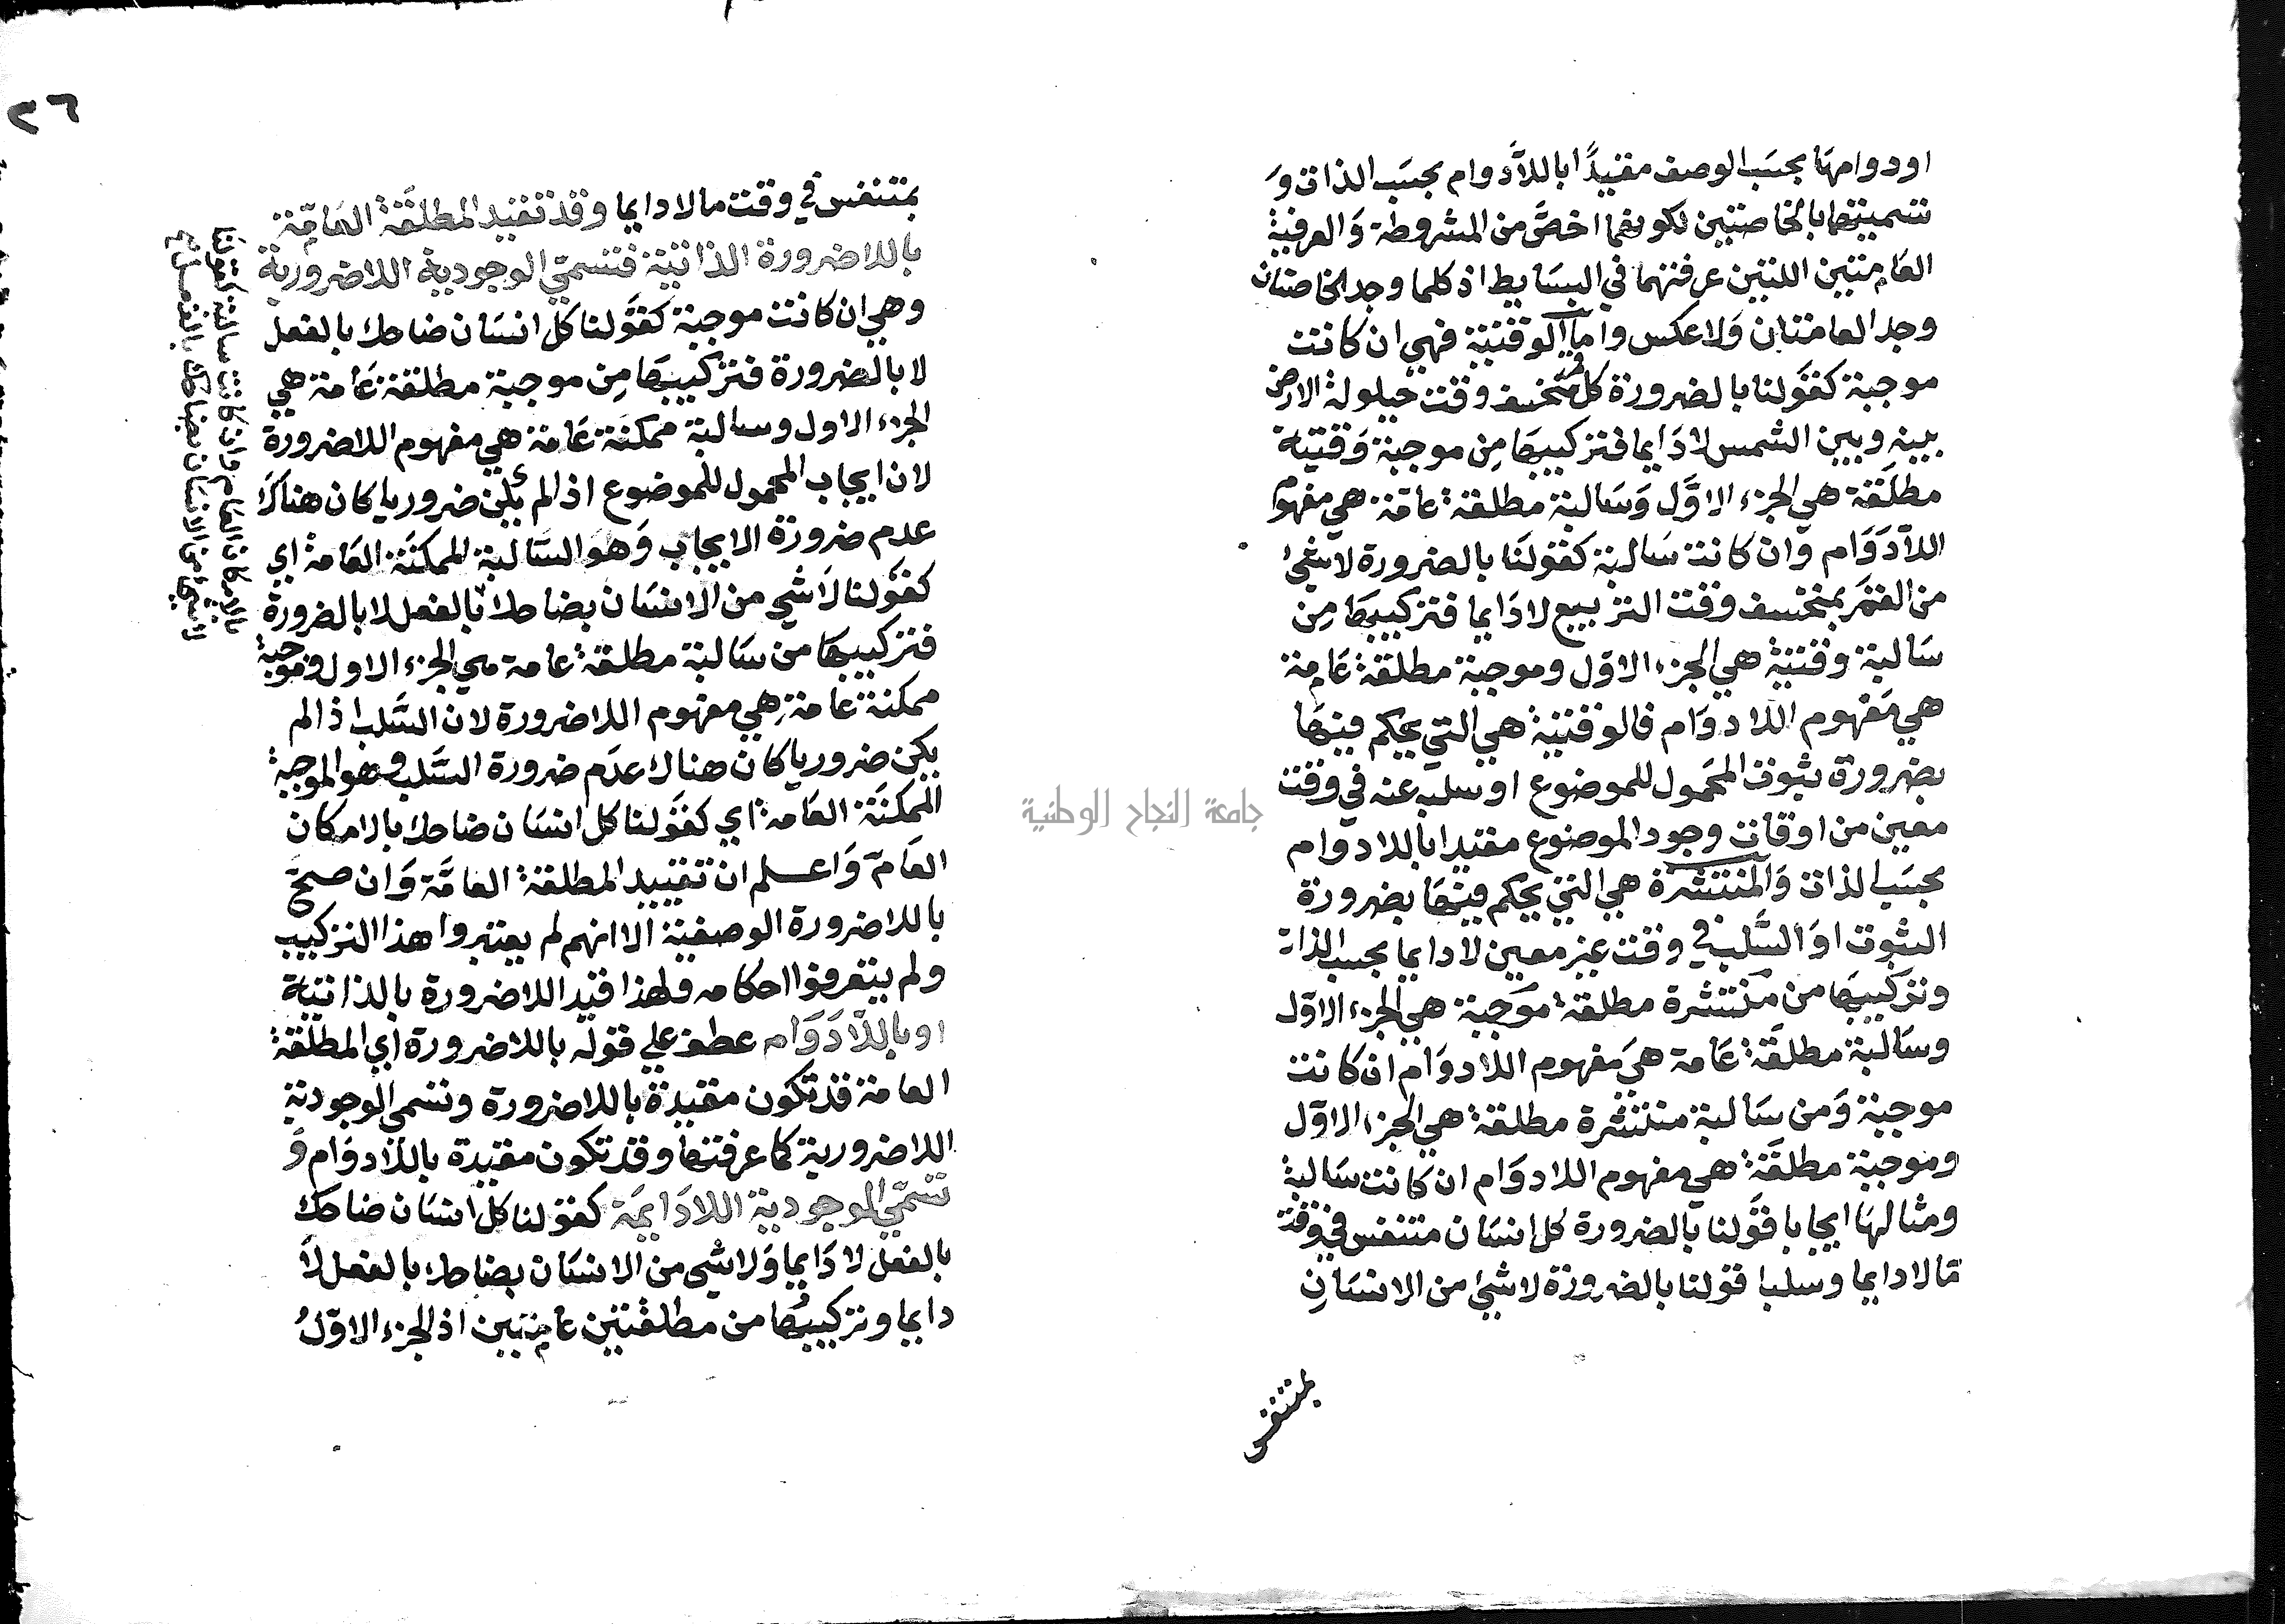 او دوامها بحسَب الوصف مقيدًا باللاَّدوام بحسَب الذات وَ
تسميتهما بالخاصتين لكونهما اخصَّ من المشروطة وَالعرفية
العامتين اللتين عرفتهما في البسَايط اذ كلما وجد الخاصتان
وجد العامتان وَلا عكس واما الوقتية فهي ان كانت
موجبة كقوَلنا بالضرورة كل قمر منخسف وقت حيلولة الارض
بينه وبين الشمس لا دَايما فتركيبهَا مِن موجبة وَقتية
مطلقَة هي الجزء الاوَّل وَسَالبة مطلقة عامة هي مفهوم
اللاَّدَوَام وَان كانت سَالبة كقولنَا بالضرورة لا شئ
من القمَر بمنخسف وقت التربيع لا دَايما فتركيبهَا مِن
سَالبة وقتية هي الجزء الاوّل وموجبة مطلقة عَامة
هي مَفهوم اللاَّ دوَام فالوقتية هي التي يحكم فيهَا
بضرورة ثبوت المحَمول للموضوع او سلبه عنه في وقت
معين من اوقات وجود الموضوع مقيدا باللا دوام
بحسَب الذات وَالمنتشرة هي التي يحكم فيهَا بضرورة
الثبوت اوَ السَّلب في وقت غير معين لا دايما بحسب الذات
وتركَيبهَا من منتشرة مطلقة موَجبة هي الجزء الاوّل
وسَالبة مطلقَة عَامة هيَ مفهوم اللادوَام ان كانت
موجبة وَمن سَالبة منتشرة مطلقة هي الجزء الاوّل
وموجبة مطلقَة هي مفهوم اللادوَام ان كانت سَالبة
ومثالهَا ايجابا قوَلنا بالضرورة كل انسَان متنفس في وقت
مَا لا دايما وسلبا قولنا بالضرورة لا شئ من الانسَانِ
بمتنفس
٢٦
بمتنفس في وقت ما لا دايما وقد تقيد المطلقَة العَامّة
باللاضرورة الذاتية فتسمّي الوجودية اللاضرورية
وهي ان كانت موجبة كقوَلنا كل انسَان ضاحك بالفعل
لا بالضرورة فتركيبهَا مِن موجبة مطلقة عَامة هي
الجزء الاول وسالبة ممكنَة عَامة هي مفهوم اللاضرورة
لان ايجاب المحمول للموضوع اذا لم يكن ضروريا كان هناك
عدم ضرورة الايجاب وَهوَ السَّالبة الممكنَة العَامة اي
كقوَلنا لاَ شي من الانسَان بضاحك بالفعل لا بالضرورة
فتركيبهَا من سَالبة مطلقة عامة هي الجزء الاول وموجبة
ممكنة عامة هِي مفهوم اللاضرورة لان السَّلب اذا لم
يكن ضروريا كان هناك عدَم ضرورة السَّلب وهو الموجبة
الممكنَة العَامة اي كقوَلنا كل انسَان ضاحك بالامكان
العَامّ وَاعلم ان تقييد المطلقة العامَّة وَان صحَّ
باللاضرورة الوصفية الا انهم لم يعتبروا هذا التركيب
ولم يتعرفوا احكامه فلهذا قيد اللاضرورة بالذاتية
او باللاَّدَوَام عطف علي قوله باللاضرورة اي المطلقة
العامة قد تكون مقيدة باللاضرورة وتسمي الوجودية
اللاضرورية كما عرفتهَا وقد تكون مقيدة باللاَّدوَام وَ
تسمّي الوجودية اللادَايمَة كقولنا كل انسَان ضاحك
بالفعل لا دَايما وَلا شي من الانسَان بضاحك بالفعل لاَ
دايما وتركيبهَا من مطلقتين عامتين اذ الجزء الاوّلُ
بالامكان العام وان كانت سالبة كقولنا
لا شي من الانسَان بضاحك بالفعل